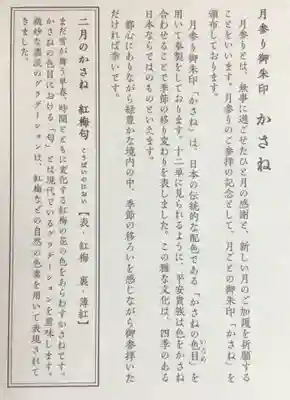 月参り御朱印　かさね
月参りとは、無事に過ごせたひと月の感謝と、新しい月のご加護を祈願する
ことをいいます。月参りのご参拝の記念として、月ごとの御朱印「かさね」を
頒布しております。
月参り御朱印「かさね」は、日本の伝統的な配色である「かさねの色目」を
いろめ
用いて奉製をしております。十二単に見られるように、平安貴族は色をかさね
合わせることで季節の移り変わりを表しました。この雅な文化は、四季のある
日本ならではのものといえます。
都心にありながら緑豊かな境内の中、季節の移ろいを感じながら御参拝いた
だければ幸いです。
二月のかさね　紅梅匂　【表、紅梅　裏、薄紅】
こうばいのにおい
まだ雪が舞う早春、時間とともに変化する紅梅の花の色をあらわすかさねです。
かさねの色目における「匂」とは現代でいうグラデーションを意味します。
微妙な濃淡のグラデーションは、紅梅などの自然の色素を用いて表現されて
きました。